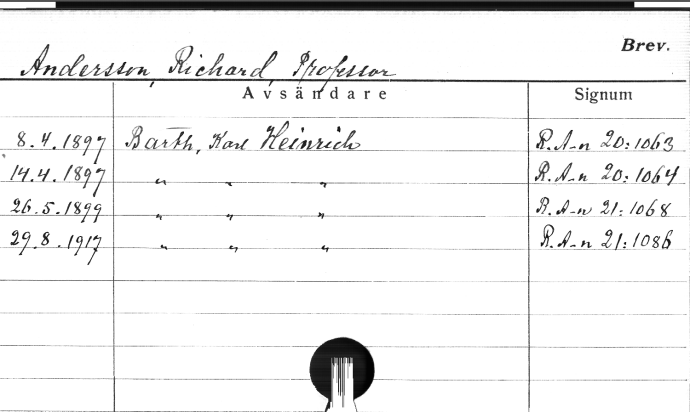 Brev.
Andersson, Richard, Professor
Avsändare Signum
8.4.1897 Barth, Karl Heinrich R.A-n 20:1063
14.4.1897 " " " R.A-n 20:1064
26.5.1899 " " " R.A-n 21:1068
29.8.1917 " " " R.A-n 21:1086